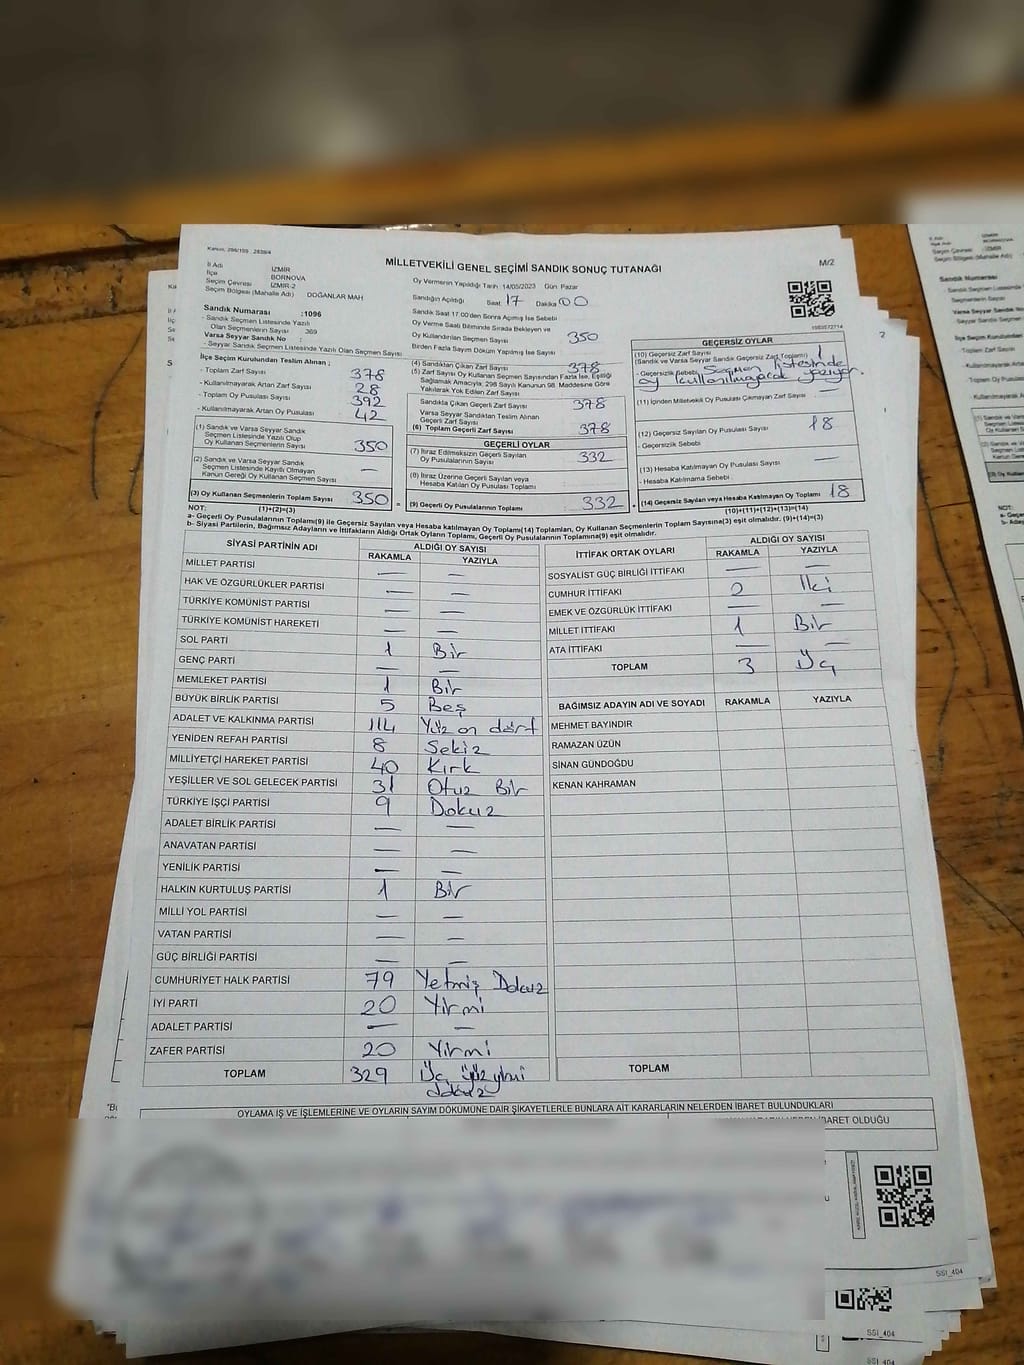 Kanun, 298/105 : 2839/4
MİLLETVEKİLİ GENEL SEÇİMİ SANDIK SONUÇ TUTANAĞI
M/2
İl Adı İZMİR
İlçe BORNOVA
Seçim Çevresi : İZMİR-2
Seçim Bölgesi (Mahalle Adı) : DOĞANLAR MAH
Oy Vermenin Yapıldığı Tarih : 14/05/2023 Gün Pazar
Sandığın Açıldığı Saat 17 Dakika 00
Sandık Numarası :1096
- Sandık Seçmen Listesinde Yazılı
Olan Seçmenlerin Sayısı 369
Varsa Seyyar Sandık No :
- Seyyar Sandık Seçmen Listesinde Yazılı Olan Seçmen Sayısı
Sandık Saat 17.00'den Sonra Açılmış İse Sebebi
Oy Verme Saati Bitiminde Sırada Bekleyen ve
Oy Kullandırılan Seçmen Sayısı 350
Birden Fazla Sayım Döküm Yapılmış İse Sayısı
1983572714
İlçe Seçim Kurulundan Teslim Alınan ;
- Toplam Zarf Sayısı 378
- Kullanılmayarak Artan Zarf Sayısı 28
- Toplam Oy Pusulası Sayısı 392
- Kullanılmayarak Artan Oy Pusulası 42
(1) Sandık ve Varsa Seyyar Sandık
Seçmen Listesinde Yazılı Olup
Oy Kullanan Seçmenlerin Sayısı 350
(2) Sandık ve Varsa Seyyar Sandık
Seçmen Listesinde Kayıtlı Olmayan
Kanun Gereği Oy Kullanan Seçmen Sayısı —
(3) Oy Kullanan Seçmenlerin Toplam Sayısı 350
(1)+(2)=(3)
(4) Sandıktan Çıkan Zarf Sayısı 378
(5) Zarf Sayısı Oy Kullanan Seçmen Sayısından Fazla İse, Eşitliği
Sağlamak Amacıyla, 298 Sayılı Kanunun 98. Maddesine Göre
Yakılarak Yok Edilen Zarf Sayısı
Sandıkta Çıkan Geçerli Zarf Sayısı 378
Varsa Seyyar Sandıktan Teslim Alınan
Geçerli Zarf Sayısı
(6) Toplam Geçerli Zarf Sayısı 378
GEÇERLİ OYLAR
(7) İtiraz Edilmeksizin Geçerli Sayılan
Oy Pusulalarının Sayısı 332
(8) İtiraz Üzerine Geçerli Sayılan veya
Hesaba Katılan Oy Pusulası Toplamı
(9) Geçerli Oy Pusulalarının Toplamı 332
GEÇERSİZ OYLAR
(10) Geçersiz Zarf Sayısı
(Sandık ve Varsa Seyyar Sandık Geçersiz Zarf Toplamı)
- Geçersizlik Sebebi Seçmen listesinde
oy kullanılmayacak yazıyor.
(11) İçinden Milletvekili Oy Pusulası Çıkmayan Zarf Sayısı —
(12) Geçersiz Sayılan Oy Pusulası Sayısı 18
- Geçersizlik Sebebi
(13) Hesaba Katılmayan Oy Pusulası Sayısı —
- Hesaba Katılmama Sebebi
(14) Geçersiz Sayılan veya Hesaba Katılmayan Oy Toplamı 18
(10)+(11)+(12)+(13)=(14)
NOT:
a- Geçerli Oy Pusulalarının Toplamı(9) ile Geçersiz Sayılan veya Hesaba katılmayan Oy Toplam(14) Toplamları, Oy Kullanan Seçmenlerin Toplam Sayısına(3) eşit olmalıdır. (9)+(14)=(3)
b- Siyasi Partilerin, Bağımsız Adayların ve İttifakların Aldığı Ortak Oyların Toplamı, Geçerli Oy Pusulalarının Toplamına(9) eşit olmalıdır.
SİYASİ PARTİNİN ADI ALDIĞI OY SAYISI
RAKAMLA YAZIYLA
MİLLET PARTİSİ — —
HAK VE ÖZGÜRLÜKLER PARTİSİ — —
TÜRKİYE KOMÜNİST PARTİSİ — —
TÜRKİYE KOMÜNİST HAREKETİ — —
SOL PARTİ 1 Bir
GENÇ PARTİ — —
MEMLEKET PARTİSİ 1 Bir
BÜYÜK BİRLİK PARTİSİ 5 Beş
ADALET VE KALKINMA PARTİSİ 114 Yüz on dört
YENİDEN REFAH PARTİSİ 8 Sekiz
MİLLİYETÇİ HAREKET PARTİSİ 40 Kırk
YEŞİLLER VE SOL GELECEK PARTİSİ 31 Otuz Bir
TÜRKİYE İŞÇİ PARTİSİ 9 Dokuz
ADALET BİRLİK PARTİSİ — —
ANAVATAN PARTİSİ — —
YENİLİK PARTİSİ — —
HALKIN KURTULUŞ PARTİSİ 1 Bir
MİLLİ YOL PARTİSİ — —
VATAN PARTİSİ — —
GÜÇ BİRLİĞİ PARTİSİ — —
CUMHURİYET HALK PARTİSİ 79 Yetmiş Dokuz
İYİ PARTİ 20 Yirmi
ADALET PARTİSİ — —
ZAFER PARTİSİ 20 Yirmi
TOPLAM 329 Üç yüz yirmi
dokuz
İTTİFAK ORTAK OYLARI ALDIĞI OY SAYISI
RAKAMLA YAZIYLA
SOSYALİST GÜÇ BİRLİĞİ İTTİFAKI — —
CUMHUR İTTİFAKI 2 İki
EMEK VE ÖZGÜRLÜK İTTİFAKI — —
MİLLET İTTİFAKI 1 Bir
ATA İTTİFAKI — —
TOPLAM 3 Üç
BAĞIMSIZ ADAYIN ADI VE SOYADI RAKAMLA YAZIYLA
MEHMET BAYINDIR
RAMAZAN ÜZÜN
SİNAN GÜNDOĞDU
KENAN KAHRAMAN
TOPLAM
OYLAMA İŞ VE İŞLEMLERİNE VE OYLARIN SAYIM DÖKÜMÜNE DAİR ŞİKAYETLERLE BUNLARA AİT KARARLARIN NELERDEN İBARET BULUNDUKLARI
İBARET OLDUĞU
SSI_404
SSI_404
SSI_404
İZMİR
BORNOVA
Seçim Çevresi : İZMİR
Seçim Bölgesi (Mahalle Adı) :
Sandık Numarası